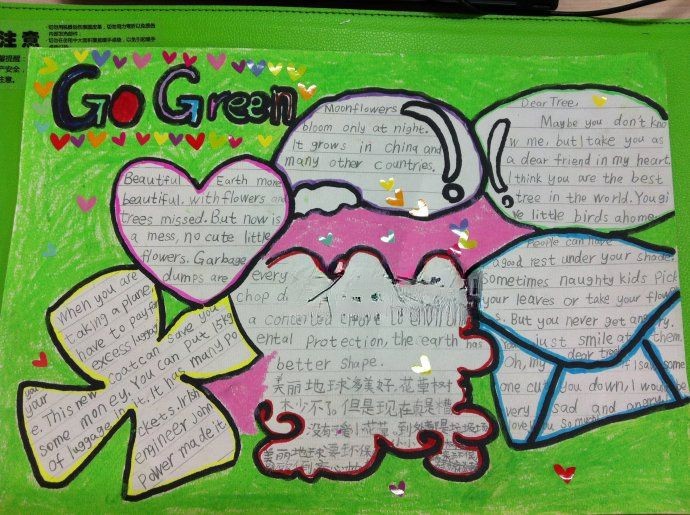 注意
Go Green
Moonflowers
bloom only at night.
It grows in china and
many other countries.
Dear Tree,
Maybe you don't kno
w me, but I take you as
a dear friend in my heart.
I think you are the best
tree in the world. You gi
ve little birds a home.
People can have
a good rest under your shade.
Sometimes naughty kids pick
your leaves or take your flow
s. But you never get angry.
just smile at them.
Oh, my dear tree
if I saw some
one cut you down, I would be
very sad and angry.
love you so much
Beautiful Earth more
beautiful, with flowers and
trees missed. But now is
a mess, no cute little
flowers. Garbage
dumps are
every
chop d
ental protection, the earth has
better shape.
美丽地球多美好,花草树
木少不了。但是现在真是糟
没有可爱小花草,到处都是垃圾场
美丽地球要环保
When you are
taking a plane,
have to pay for
excess luggag
you
your
e. This new coat can save you
some money. You can put 15kg
of luggage in it. It has many po
ckets. Irish
engineer John
Power made it